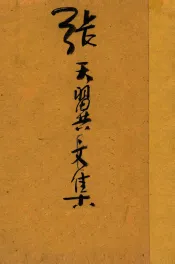 张天翼文集